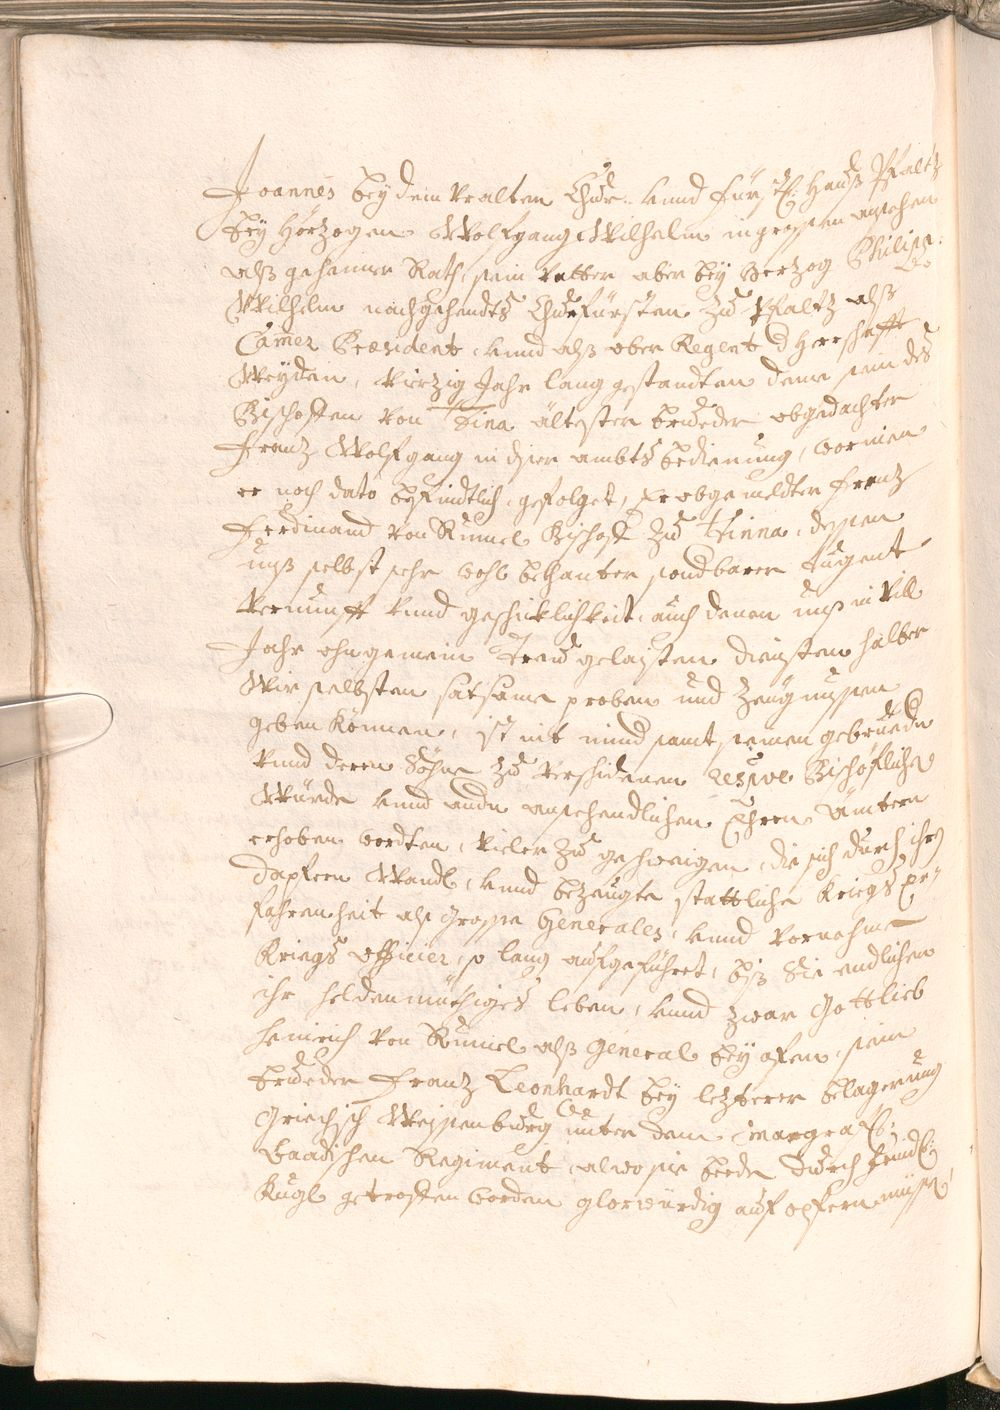 Joannes bey dem Vralten Chur: Vnnd fürstl: Hauß Pfaltz
bey Hörzogen Wolfgang Wilhelm in grossem ansehen
alß gehaimer Rath, sein Vatter aber bey Herzog Philipp
Wilhelm nachgehendts Churfürsten zu Pfaltz alß
Camer Præsident, vnnd alß ober Regent d Herrschafft
Weyden, Vierzig Jahr lang gestandten deme sein des
Bischoffen von Tina ältester brueder obgedachter
Franz Wolfgang in diser ambts bedienung, worinen
er noch dato befindtlich, gefolget, Er obgemeldter Franz
Ferdinand von Rumel Bischoff zu Tinna, dessen
unß selbst sehr wohl bekhanter sondbarer tugent
Vernunfft vnnd geschicklichkeit, auch denen unß in Vill
Jahr ohngemein treu gelaisten diensten halber
Wir selbsten satsame proben und Zeugnussen
geben können, ist nit mind samt seinen gebruedn
vnnd deren Söhne zu verschidenen respve Bischöflichen
Würde vnnd andn ansehendlichen Ehren ämbtern
erhoben wordten, Vieler zu geschweigen, die sich durch ihrn
dapfern Wandl, vnnd bezeugte stattliche Kriegs Er-
fahrenheit als Grosse Generales, vnnd Vornehme
Kriegs officier, so lang aufgeführet, biß Sie endlichen
ihr heldenmüthiges leben, vnnd zwar Gottlieb
Heinrich von Rumel alß General bey ofen, sein
brueder Franz Leonhardt bey letzterer belagerung
Griechisch Weissenburg unter dem Margraffl:
Baadischen Regiment, alwo sie beede durch feindl:
Kugl getroffen worden glorwürdig aufopfern müssen